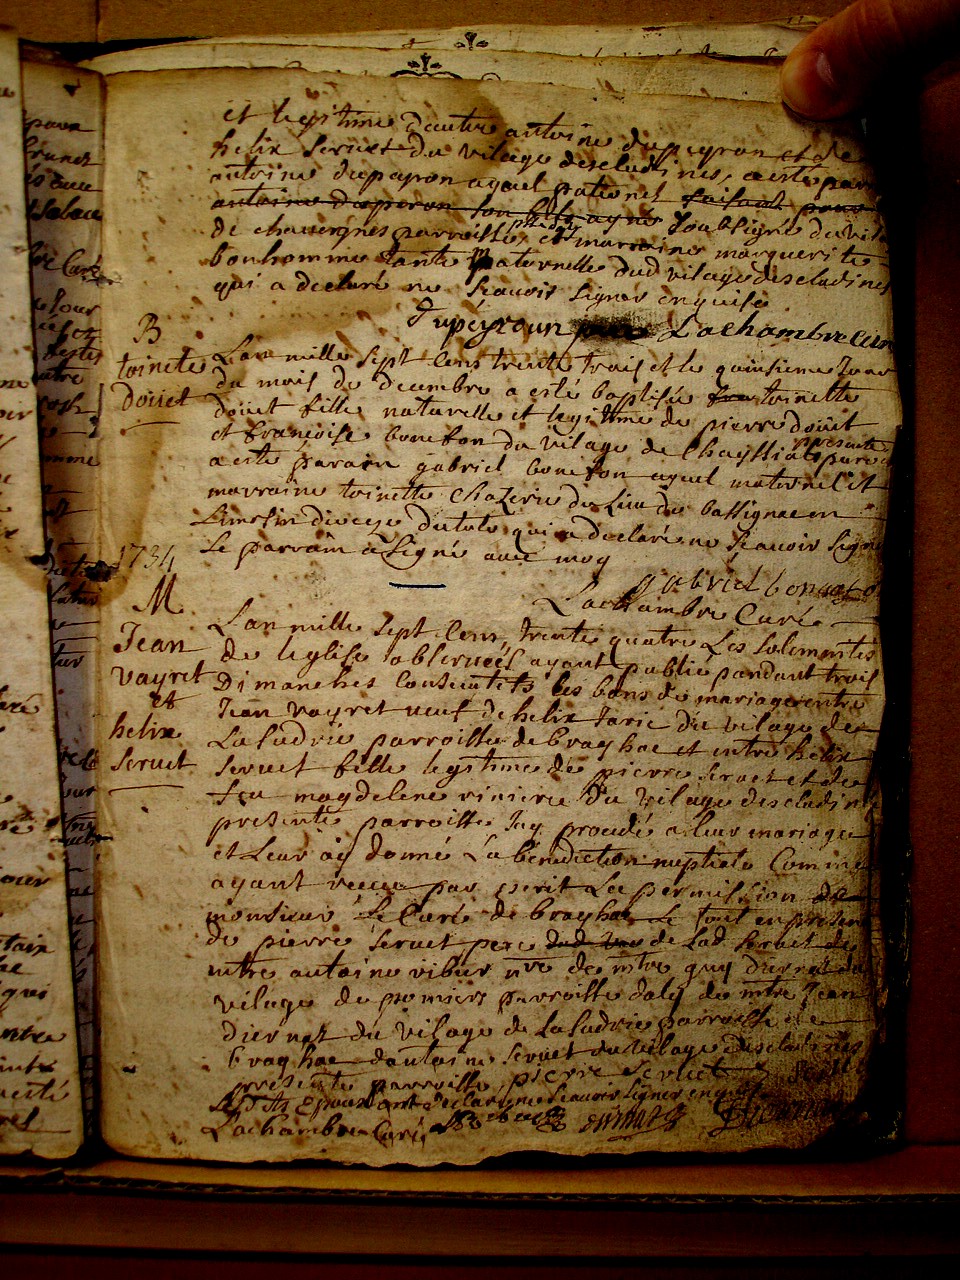 et legitime d'autre antoine dupeyron et de
helix seruet du vilage desclidines, a esté parr
antoine dupayron ayeul paternel faisant pour
antoine duperon son fils ayné soubsigné du vila
de chauergnes parroisse pnte et marraine marguerite
bonhomme tante paternelle dud vilage desclidines
qui a declaré ne scauoir signer enquise
Dupéyroun Lachambre Curé
B
toinete
Doüet
Lan mille sept cens trente trois et le quinsieme Jour
du mois de decembre a esté baptisée toinette
doüet fille naturelle et legitime de pierre doüet
et francoise bonefon du vilage de presente parr
a esté parain gabriel bonefon ayeul maternel et
marraine toinette chazerie du Lieu de bassignac en
Limosin diocese de tule qui a declaré ne scauoir signe
Le parrain a signé avec moy
gabriel bonafo
Lachambre Curé
1734
M
Jean
vayret
et
helix
seruet
Lan mille sept cens trente quatre Les solemnites
de leglise obseruées ayant publié pandant trois
Dimanches consecutifs les bans de mariage entre
Jean vayret veuf de helix Jarie du vilage de
La sudrie parroisse de braghac et entre helix
seruet fille legitime de pierre seruet et de
feu magdelene viniere du vilage desclidin
presente parroisse Jay procedé a leur mariage
et Leur ay donné La bénédiction nuptiale Comme
ayant receu par ecrit La permission de
monsieur Le Curé de braghac Le tout en presen
de pierre seruet pere de Lad seruet de
mtre antoine vibur nre de mtre guy diernat du
vilage de pomiers parroisse daly de mtre Jean
diernat du vilage de La sudrie parroisse de
braghac dantoine seruet du vilage desclidines
presente parroisse, pierre seruet
Lesdits epoux ont declaré ne scauoir signer enquis
Lachambre Curé